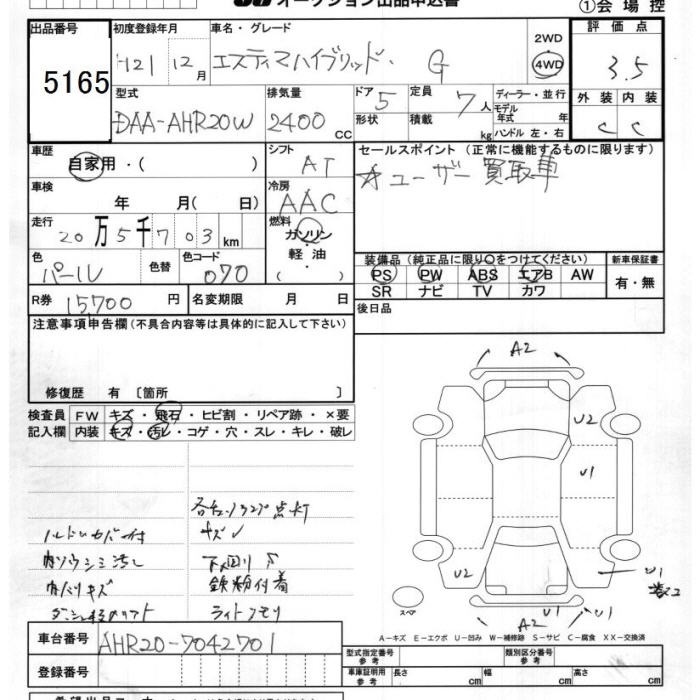 オークション出品申込書
①会場控
出品番号
5165
初度登録年月
H21 12月
車名・グレード
エスティマハイブリッド・ G
2WD
4WD
評価点
3.5
型式
DAA-AHR20W
排気量
2400 CC
ドア 5
形状
定員 7人
積載 kg
ディーラー・並行
モデル年式 年
ハンドル 左・右
外装 内装
C C
車歴
自家用・( )
シフト
AT
セールスポイント (正常に機能するものに限ります)
☆ユーザー買取車
車検
年 月( 日)
冷房
AAC
走行
20万5千703km
燃料
ガソリン
・
軽油
・
( )
色
パール
色替
色コード
070
装備品 (純正品に限り○をつけてください)
PS PW ABS エアB AW
SR ナビ TV カワ
新車保証書
有・無
R券 15,700 円
名変期限 月 日
後日品
注意事項申告欄 (不具合内容等は具体的に記入して下さい)
修復歴 有 〔箇所 〕
検査員記入欄
FW キズ・飛石・ヒビ割・リペア跡・×要
内装 キズ・汚レ・コゲ・穴・スレ・キレ・破レ
点灯
キズ
下回り
鉄粉付着
汚し
キズ
A2
U2
U1
U2
U1
A2
U1
スペア
A-キズ E-エクボ U-凹み W-補修跡 S-サビ C-腐食 XX-交換済
車台番号 AHR20-7042701
登録番号
型式指定番号
参考
類別区分番号
参考
車庫証明用
参考
長さ cm
幅 cm
高さ cm